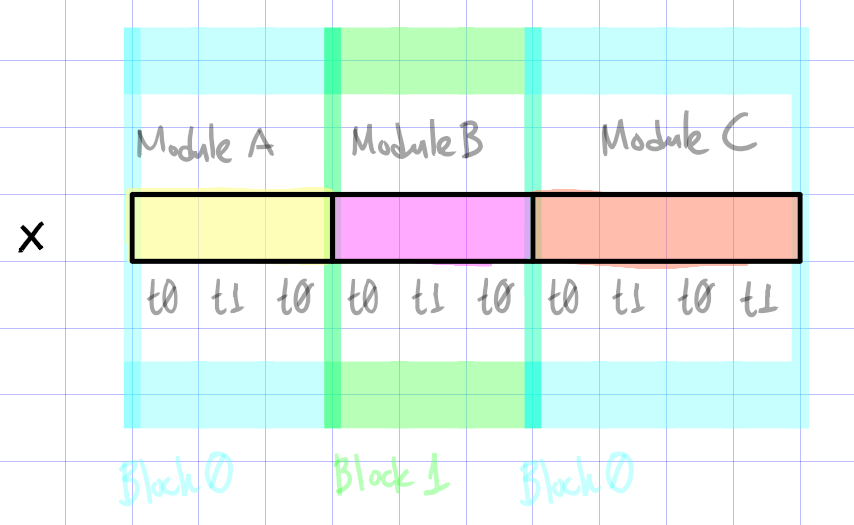 Module A Module B Module C
x
t0 t1 t0 t0 t1 t0 t0 t1 t0 t1
Block 0 Block 1 Block 0